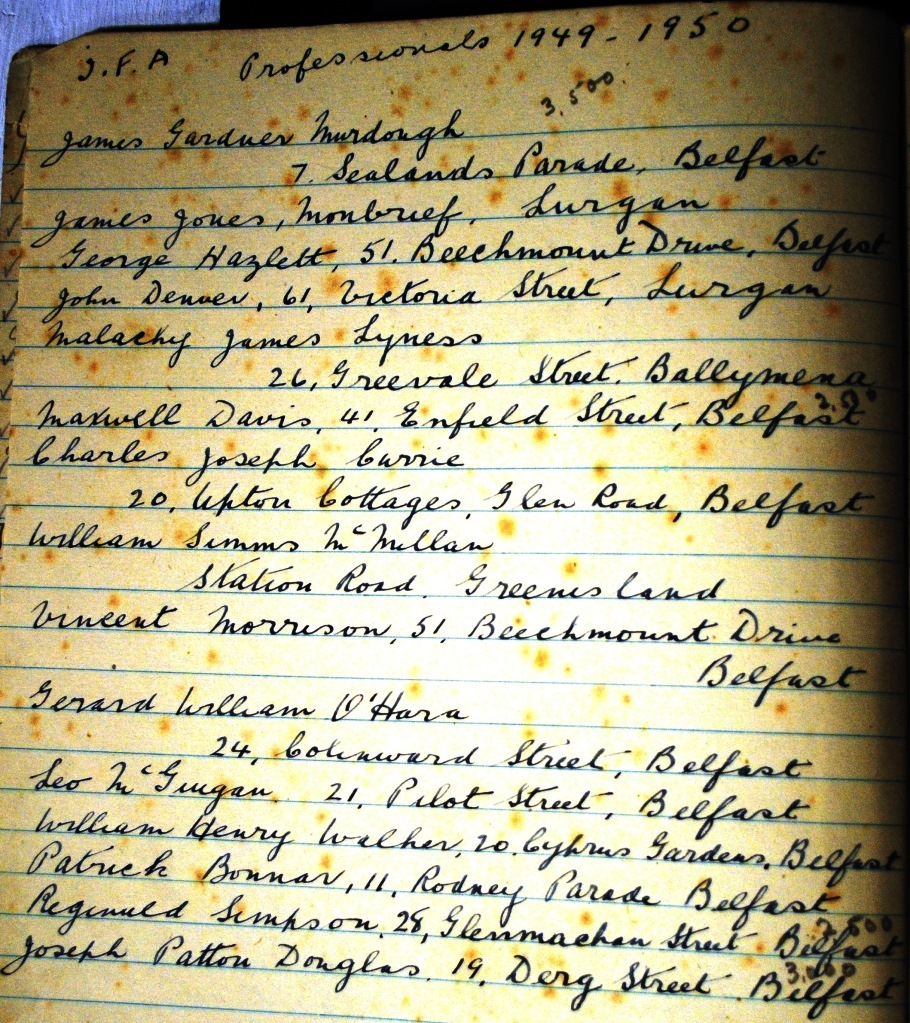 I.F.A Professionals 1949-1950
3,500.
James Gardner Murdough
7. Sealands Parade, Belfast
James Jones, Monbrief, Lurgan
George Hazlett, 51. Beechmount Drive, Belfast
John Denver, 61, Victoria Street, Lurgan
Malachy James Lyness
26, Greevale Street. Ballymena
Maxwell Davis, 41, Enfield Street, Belfast
Charles Joseph Currie
20, Upton Cottages, Glen Road, Belfast
William Simms McMillan
Station Road. Greenisland
Vincent Morrison, 51, Beechmount Drive
Belfast
Gerard William O'Hara
24, Colinward Street, Belfast
Leo McGuigan, 21, Pilot Street, Belfast
William Henry Walker, 20. Cyprus Gardens, Belfast
Patrick Bonnar, 11, Rodney Parade Belfast
Reginald Simpson, 28, Glenmachan Street Belfast
Joseph Patton Douglas. 19, Derg Street. Belfast
3,000